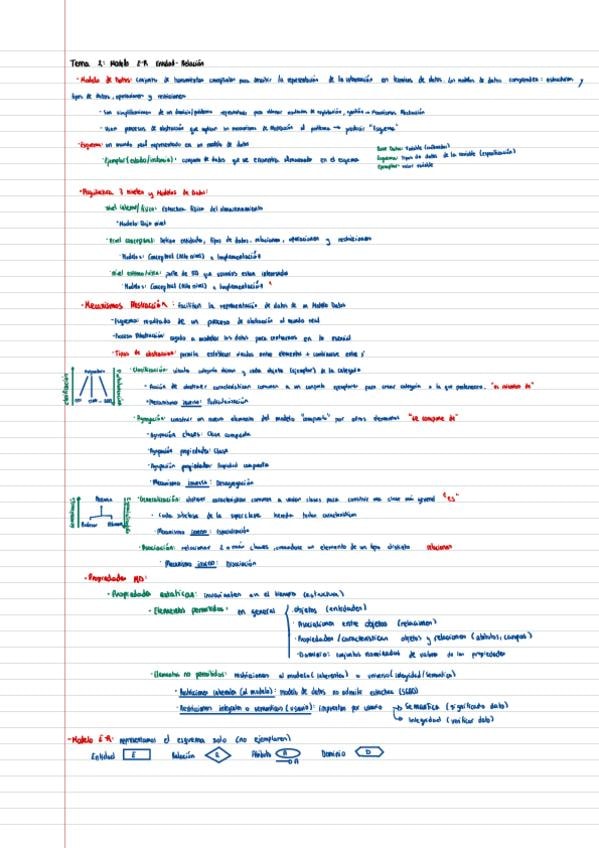 Tema 2: Modelo E-R Entidad-Relación
- Modelo de Datos: conjunto de herramientas conceptuales para describir la representación de la información en términos de datos. Los modelos de datos comprenden: estructuras,
tipos de datos, operaciones y restricciones
- Son simplificaciones de un dominio/problema representan para obtener
- Usan procesos de abstracción que aplican un mecanismo de abstracción al problema → producir "Esquema"
- Esquema: un mundo real representado en un modelo de datos
- Ejemplar (estado/instancia): conjunto de datos que se encuentra almacenado en el esquema
Base Datos: Variable
Esquema: Tipos de datos de la variable (especificación)
Ejemplar: valor variable
- Arquitectura 3 niveles y Modelos de Datos:
Nivel interno/físico: estructura física del almacenamiento
Modelo: Bajo nivel
Nivel conceptual: Define entidades, tipos de datos, relaciones, operaciones y restricciones
Modelos: Conceptual (Alto nivel) o Implementación
Nivel externo/vista: parte de BD que usuarios están interesados
Modelos: Conceptual (Alto nivel) o Implementación
- Mecanismos Abstracción: Facilitan la representación de datos de un Modelo Datos
- Esquema: resultado de un proceso de abstracción al mundo real
- Proceso Abstracción: ayuda a modelar los datos para centrarnos en lo esencial
- Tipos de abstracción: permite establecer vínculos entre elementos
- Clasificación: vincula categoría objetos (ejemplar) de la categoría
- Acción de abstraer características comunes a un conjunto ejemplares para crear categoría a la que pertenecen. "es miembro de"
- Mecanismo inverso: Particularización
- Agregación: construir un nuevo elemento del modelo "compuesto" por otros elementos "se compone de"
- Agregación clases: Clase compuesta
- Agregación propiedades: Clase
- Agregación propiedades: Propiedad compuesta
- Mecanismo inverso: Desagregación
Persona
Profesor
- Generalización: abstraer características comunes a varias clases para construir una clase más general "es"
- Cada subclase de la superclase hereda todas características
- Mecanismo inverso: especialización
- Asociación: relacionar 2 o más clases, creándose un elemento de un tipo distinto relaciones
- Mecanismo inverso: Disociación
- Propiedades MD:
- Propiedades estáticas: invariantes en el tiempo (estructura)
- Elementos permitidos: en general
- objetos (entidades)
- Asociaciones entre objetos (relaciones)
- Propiedades/características objetos y relaciones (atributos, campos)
- Dominio: conjuntos nominados de valores de las propiedades
- Elementos no permitidos: restricciones al modelo (inherentes) o universo (integridad/semántica)
- Restricciones inherentes (al modelo): modelo de datos no admite estructura (SGBD)
- Restricciones integridad o semánticas (usuario): impuestas por usuario → Semántica (significado dato)
→ Integridad (verificar dato)
- Modelo E-R: representamos el esquema solo (no ejemplares)
Entidad E Relación R Atributo A Dominio D
A